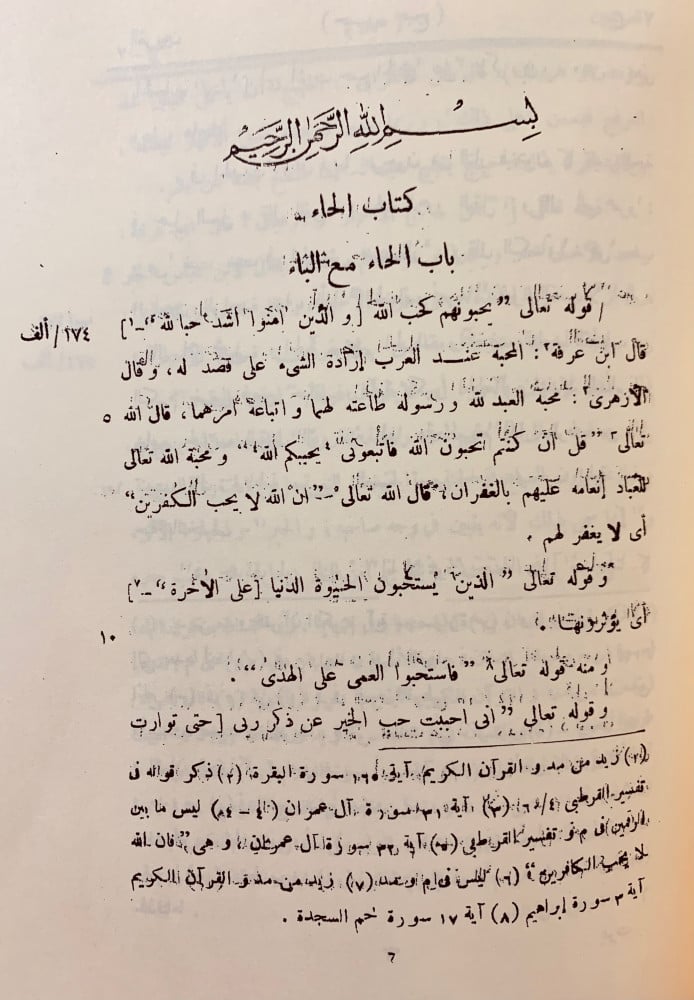 بسم الله الرحمن الرحيم
كتاب الحاء
باب الحاء مع الباء
١٧٤/ألف
/ قوله تعالى ”يحبونهم كحب الله [و الذين اٰمنوا اشد حبا لله“-١]
قال ابن عرفة٢: المحبة عند العرب إرادة الشىء على قصد له، و قال
الأزهرى٢: محبة العبد لله و رسوله طاعته لهما و اتباعه أمرهما، قال الله
٥
تعالى٣ ”قل ان كنتم تحبون الله فاتبعونى ٤يحببكم الله٤“ و محبة الله تعالى
للعباد إنعامه عليهم بالغفران، قال الله تعالى ٥-”ان الله لا يحب الكٰفرين“
أى لا يغفر لهم .
و قوله تعالى ” الذين ٦ يستحبون الحيٰوة الدنيا [على الاٰخرة“-٧]
أى يؤثرونها .
١٠
و منه قوله تعالى٨ ”فاستحبوا العمى على الهدى“ .
و قوله تعالى ” انى احببت حب الخير عن ذكر ربى [ حتى توارت
(١) زيد من مد و القرآن الكريم آية ١٦٥ سورة البقرة (٢) ذكر قوله فى
تفسير القرطبى ٤/٦٠ (٣) آية ٣١ سورة آل عمران (٤-٤) ليس ما بين
الرقمين فى م و تفسير القرطبى (٥) آية ٣٢ سورة آل عمران، و هى ”فان الله
لا يحب الكافرين“ (٦) ليس فى م و مد (٧) زيد من مد و القرآن الكريم
آية ٣ سورة إبراهيم (٨) آية ١٧ سورة حم السجدة .
٦